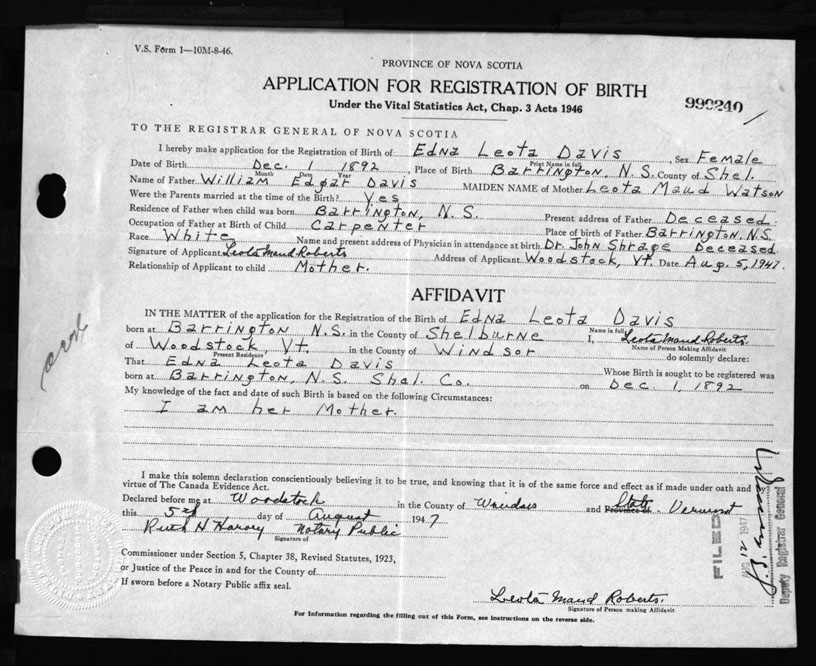 V.S. Form 1—10M-8-46.
PROVINCE OF NOVA SCOTIA
APPLICATION FOR REGISTRATION OF BIRTH
Under the Vital Statistics Act, Chap. 3 Acts 1946
990240
TO THE REGISTRAR GENERAL OF NOVA SCOTIA
I hereby make application for the Registration of Birth of Edna Leota Davis, Sex Female
Print Name in full
Date of Birth Dec. 1 1892, Place of Birth Barrington, N.S. County of Shel.
Month Day Year
Name of Father William Edgar Davis MAIDEN NAME of Mother Leota Maud Watson
Were the Parents married at the time of the Birth? Yes
Residence of Father when child was born Barrington, N.S. Present address of Father Deceased
Occupation of Father at Birth of Child Carpenter Place of birth of Father Barrington, N.S.
Race White Name and present address of Physician in attendance at birth Dr. John Shrage Deceased
Signature of Applicant Leota Maud Roberts Address of Applicant Woodstock, Vt. Date Aug. 5, 1947.
Relationship of Applicant to child Mother.
AFFIDAVIT
IN THE MATTER of the application for the Registration of the Birth of Edna Leota Davis
Name in full
born at Barrington N.S. in the County of Shelburne I, Leota Maud Roberts.
Name of Person Making Affidavit
of Woodstock, Vt. in the County of Windsor do solemnly declare:
Present Residence
That Edna Leota Davis Whose Birth is sought to be registered was
born at Barrington, N.S. Shel. Co. on Dec 1, 1892
My knowledge of the fact and date of such Birth is based on the following Circumstances:
I am her Mother.
I make this solemn declaration conscientiously believing it to be true, and knowing that it is of the same force and effect as if made under oath and by
virtue of The Canada Evidence Act.
Declared before me at Woodstock in the County of Windsor and Province of State Vermont
this 5th day of August 1947
Ruth H Harvey Notary Public
Signature of
Commissioner under Section 5, Chapter 38, Revised Statutes, 1923,
or Justice of the Peace in and for the County of
If sworn before a Notary Public affix seal.
Leota Maud Roberts.
Signature of Person making Affidavit
For Information regarding the filling out of this Form, see Instructions on the reverse side.
FILED
AUG 12 1947
Deputy Registrar General